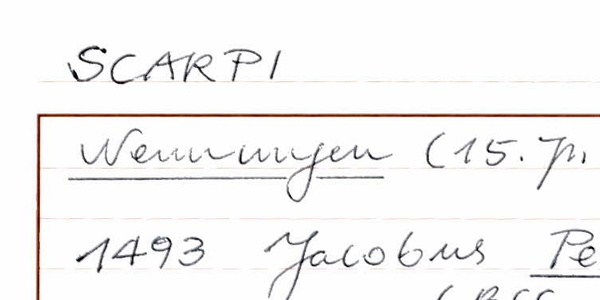 SCARPI
Wennungen (15. Jh.
1493 Jacobus Pe